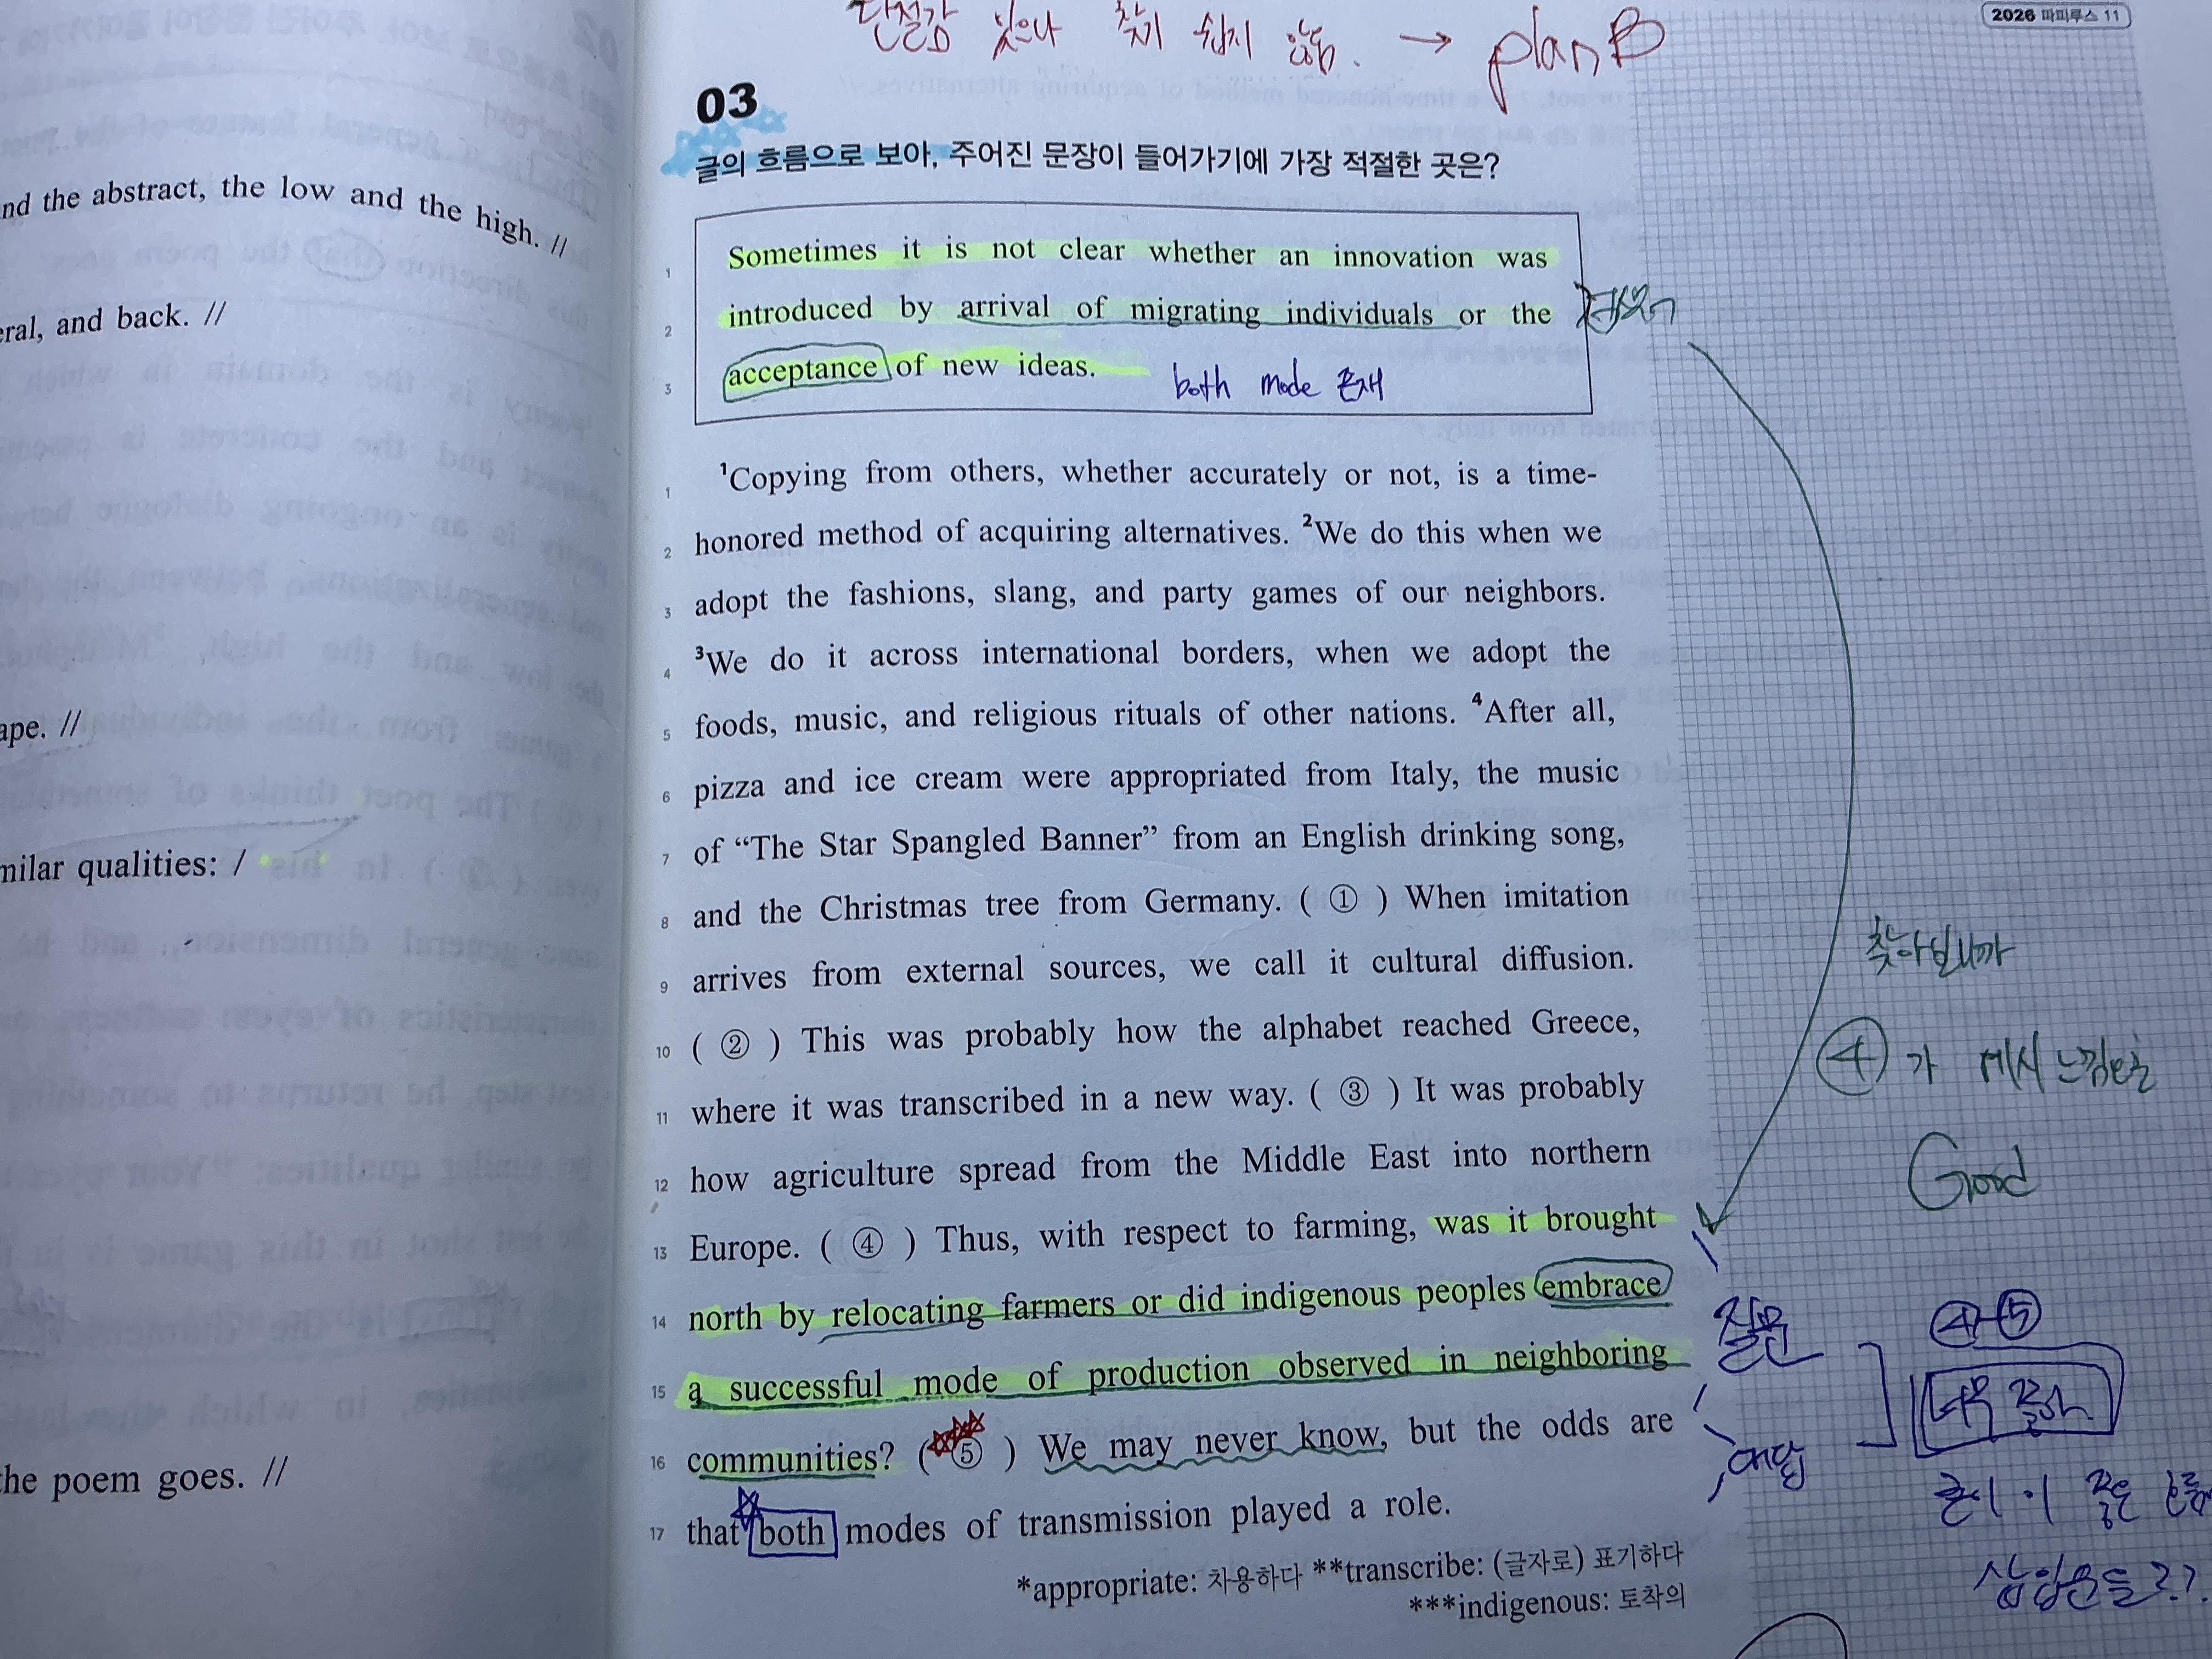 2026 파피루스 11
단절감 있으나 찾기 쉽지 않음. → plan B
03
글의 흐름으로 보아, 주어진 문장이 들어가기에 가장 적절한 곳은?
1 Sometimes it is not clear whether an innovation was
2 introduced by arrival of migrating individuals or the
3 acceptance of new ideas.
both mode 존재
1 ¹Copying from others, whether accurately or not, is a time-
2 honored method of acquiring alternatives. ²We do this when we
3 adopt the fashions, slang, and party games of our neighbors.
4 ³We do it across international borders, when we adopt the
5 foods, music, and religious rituals of other nations. ⁴After all,
6 pizza and ice cream were appropriated from Italy, the music
7 of “The Star Spangled Banner” from an English drinking song,
8 and the Christmas tree from Germany. ( ① ) When imitation
9 arrives from external sources, we call it cultural diffusion.
10 ( ② ) This was probably how the alphabet reached Greece,
11 where it was transcribed in a new way. ( ③ ) It was probably
12 how agriculture spread from the Middle East into northern
13 Europe. ( ④ ) Thus, with respect to farming, was it brought
14 north by relocating farmers or did indigenous peoples embrace
15 a successful mode of production observed in neighboring
16 communities? ( ⑤ ) We may never know, but the odds are
17 that both modes of transmission played a role.
*appropriate: 차용하다 **transcribe: (글자로) 표기하다
***indigenous: 토착의
찾아보니까
④가 예시 느낌만
Good
질문
대답
④-⑤
너무 좋아
굳이 이 좋은 흐름
삽입문을??
nd the abstract, the low and the high. //
eral, and back. //
ape. //
milar qualities: /
he poem goes. //